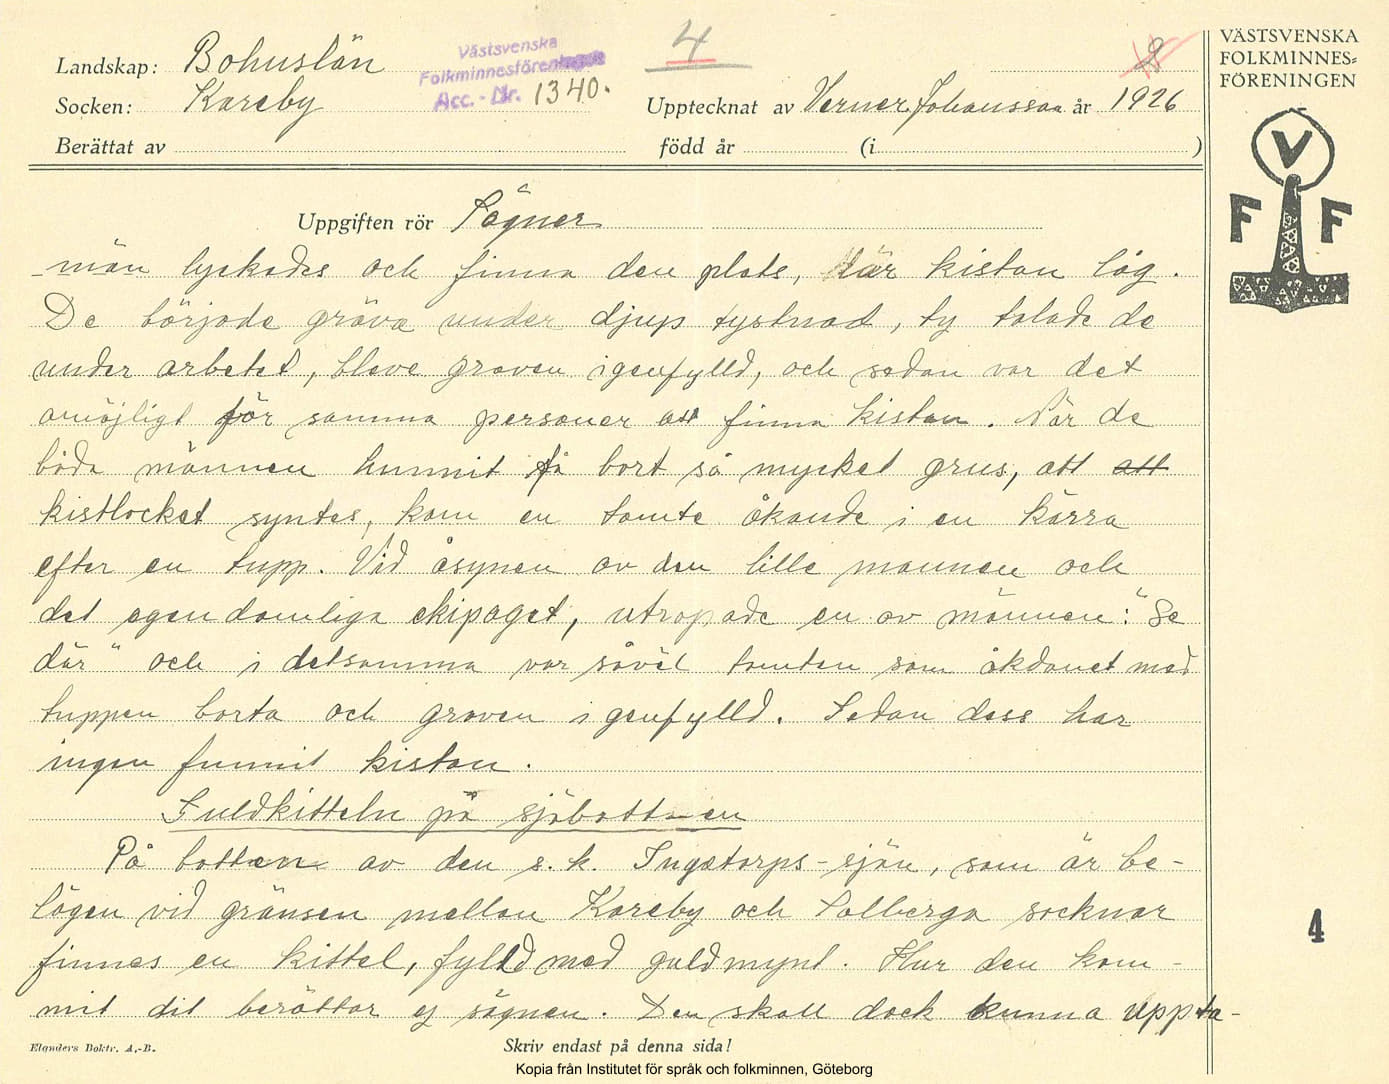 Landskap: Bohuslän
Socken: Kareby
Berättat av
Västsvenska
Folkminnesföreningen
Acc.-Nr. 1340.
4
18
Upptecknat av Verner Johansson år 1926
född år (i )
VÄSTSVENSKA
FOLKMINNES=
FÖRENINGEN
V
F F
Uppgiften rör Sägner
-män lyckades och finna den plats, där kistan låg.
De började gräva under djup tystnad, ty talade de
under arbetet, bleve graven igenfylld, och sedan var det
omöjligt för samma personer att finna kistan. När de
båda männen hunnit få bort så mycket grus, att att
kistlocket syntes, kom en tomte åkande i en kärra
efter en tupp. Vid åsynen av den lille mannen och
det egendomliga ekipaget, utropade en av männen: "Se
där" och i detsamma var såväl tomten som åkdonet med
tuppen borta och graven igenfylld. Sedan dess har
ingen funnit kistan.
Guldkitteln på sjöbottnen
På botten av den s.k. Ingetorps-sjön, som är be-
lägen vid gränsen mellan Kareby och Solberga socknar
finnes en kittel, fylld med guldmynt. Hur den kom-
mit dit berättar ej sägnen. Den skall dock kunna uppta-
4
Elanders Boktr. A.-B.
Skriv endast på denna sida!
Kopia från Institutet för språk och folkminnen, Göteborg